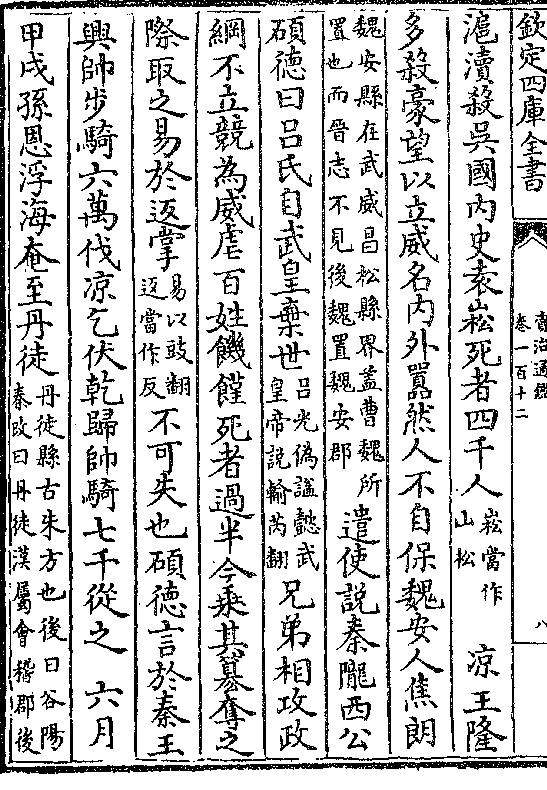 欽定四庫全書
資治通鑑
卷一百十二
八
滬瀆殺吳國內史袁崧死者四千人崧當作山松 涼王隆
多殺豪望以立威名內外囂然人不自保魏安人焦朗
魏安縣在武威昌松縣界蓋曹魏所置也而晉志不見後魏置魏安郡遣使說秦隴西公
碩德曰呂氏自武皇棄世呂光偽諡懿武皇帝說輸芮翻兄弟相攻政
綱不立競為威虐百姓饑饉死者過半今乗其簒奪之
際取之易於返掌易以豉翻返當作反不可失也碩德言於秦王
興帥步騎六萬伐涼乞伏乾歸帥騎七千從之 六月
甲戌孫恩浮海奄至丹徒丹徒縣古朱方也後曰谷陽秦改曰丹徒漢屬會稽郡後